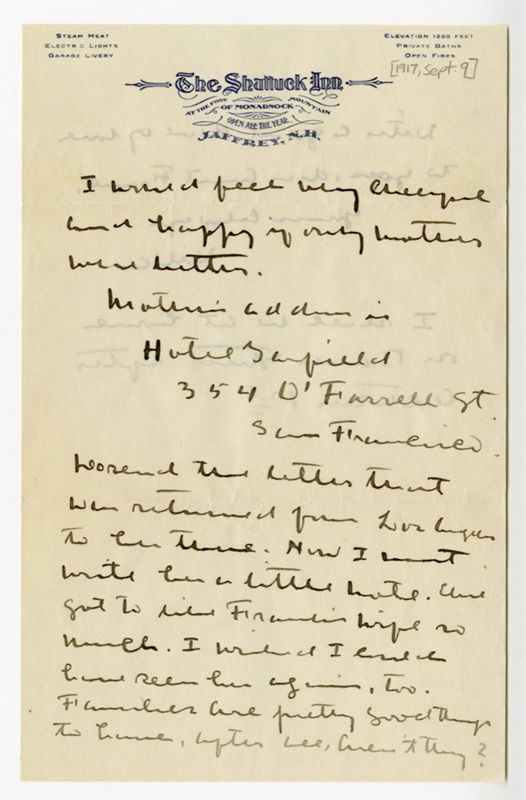 STEAM HEAT
ELECTRIC LIGHTS
GARAGE LIVERY
ELEVATION 1200 FEET
PRIVATE BATHS
OPEN FIRES
[1917, Sept. 9]
The Shattuck Inn
AT THE FOOT OF MONADNOCK MOUNTAIN
OPEN ALL THE YEAR
JAFFREY, N.H.
I would feel very cheerful
and happy if only mother
were better.
Mother's address is
Hotel Garfield
354 O'Farrell St.
San Francisco.
Do send the letter that
was returned from Los Angeles
to her there. Now I must
write her a little note. We
got to like Francis wife so
much. I wished I could
have seen her again, too.
Families are pretty good things
to have, after all, aren't they?